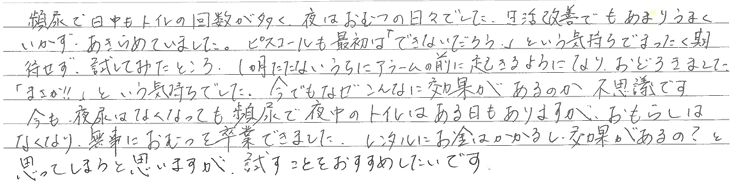 頻尿で日中もトイレの回数が多く、夜はおむつの日々でした。生活改善でもあまりうまく
いかず、あきらめていました。ピスコールも最初は「できないだろう。」という気持ちでまったく期
待せず、試してみたところ、1ヶ月たたないうちにアラームの前に起きるようになり、おどろきました
「まさか!!」という気持ちでした。今でもなぜこんなに効果があるのか不思議です
今も、夜尿はなくなっても頻尿で夜中のトイレはある日もありますが、おもらしは
なくなり、無事におむつを卒業できました。レンタルにお金はかかるし、効果があるの?と
思ってしまうと思いますが、試すことをおすすめしたいです。